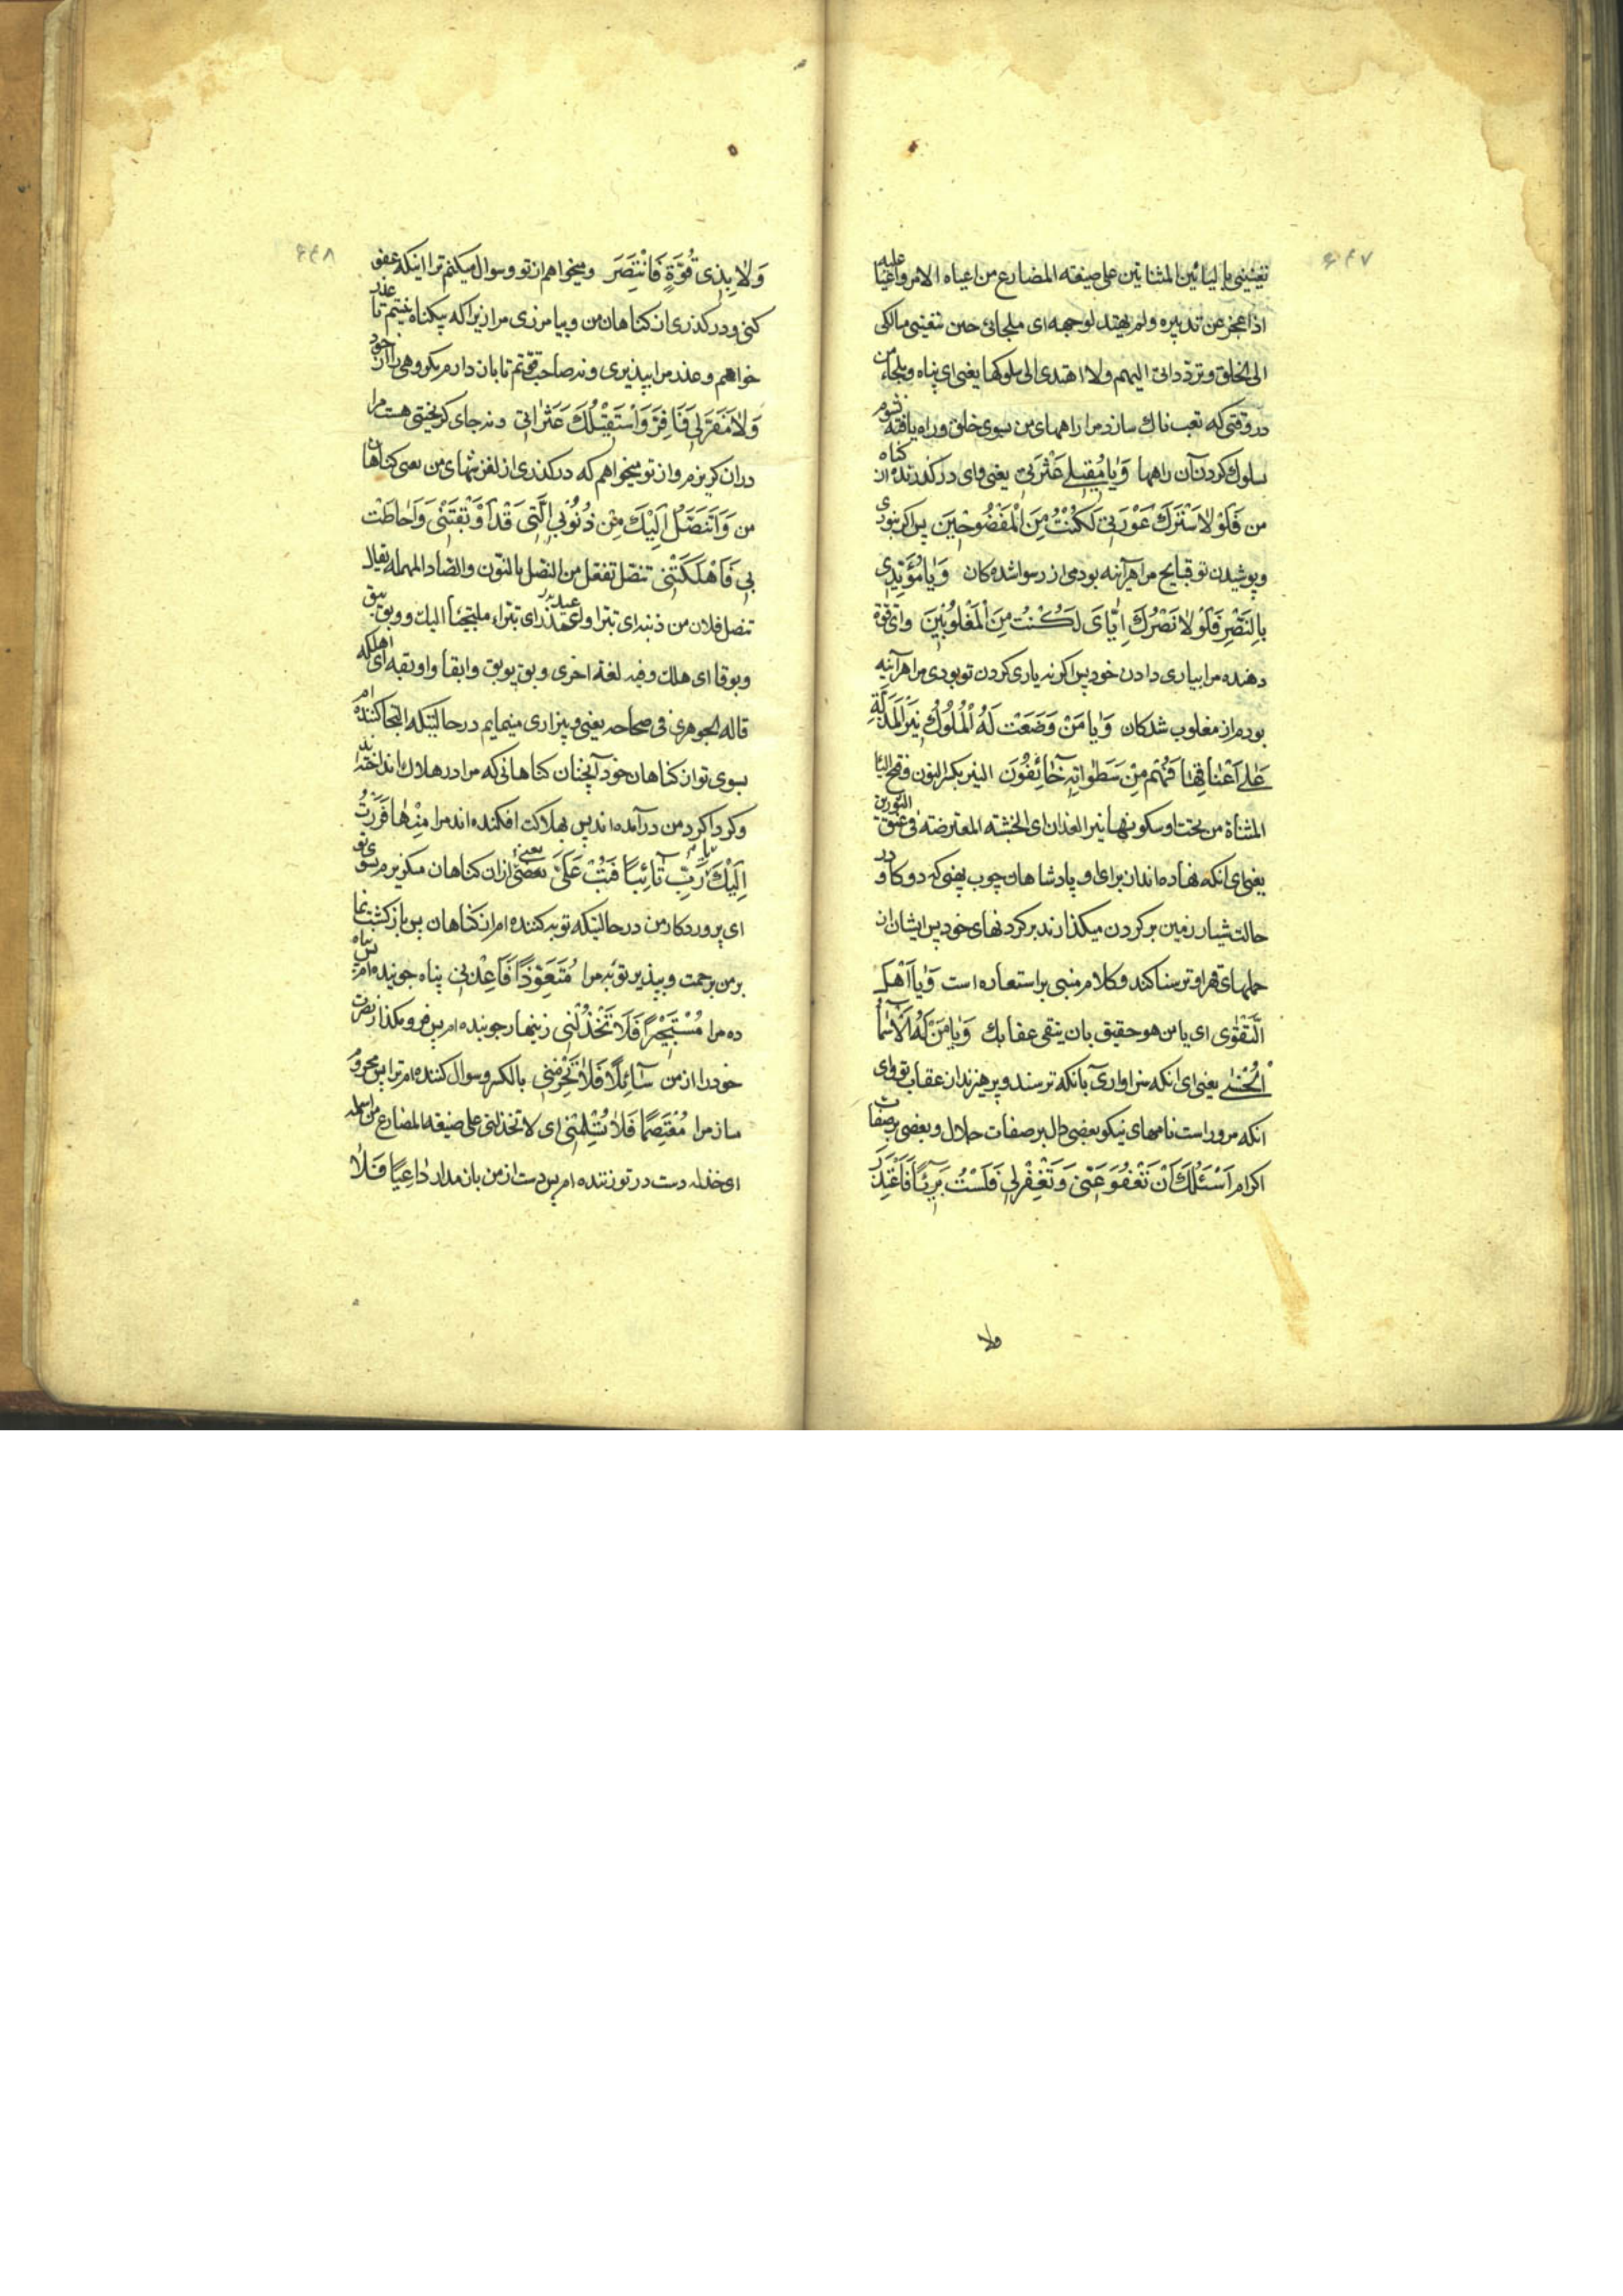 ۶۴۷
تعیینی بالیائین المثناتین علی صیغه المضارع من اعیاه الامر واعیا علیه
اذا عجز عن تدبیره ولم یهتد لوجهه ای ملجائی حین تعیینی مسالکی
الی الخلق وترددانی الیهم ولا اهتدی الی سلوکها یعنی ای پناه وملجاء من
در وقتی که تعب ناک سازد مرا راههای من بسوی خلق وراه یافته نشوم
سلوک کردن آن راهها وَیا مُقیلی عَثْرَتی یعنی وای درگذرنده از گناه
من فَلَوْلا سَتْرُكَ عَوْرَتی لَكُنْتُ مِنَ الْمَفْضُوحینَ پس اگر نبودی
وپوشیدن تو قبایح مرا هرآینه بودمی از رسوا شده کان وَیا مُؤَیِّدی
بِالنَّصْرِ فَلَوْلا نَصْرُكَ اِیّایَ لَكُنْتُ مِنَ الْمَغْلُوبینَ وای قوة
دهنده مرا بیاری دادن خود پس اگر نه یاری کردن تو بودی مرا هرآینه
بودم از مغلوب شدکان وَیا مَنْ وَضَعَتْ لَهُ الْمُلُوكُ نیرَ الْمَذَلَّةِ
عَلی اَعْناقِها فَهُمْ مِنْ سَطَواتِهِ خائِفُونَ النیر بکسر النون وفتح الیا
المثناة من تحت او سکونها نیر الفدان ای الخشبه المعترضه فی عنق الثورین
یعنی ای انکه نهاده اند از برای او پادشاهان چوب پهنی که دو کاو در
حالت شیار زمین بر کردن میکذارند بر کردنهای خود پس ایشان از
حملهای قهر او ترسناکند وکلام مبنی بر استعاره است وَیا اَهْلَ
التَّقْوی ای یا من هو حقیق بان یتقی عقابك وَیا مَنْ لَهُ الْاَسْماءُ
الْحُسْنی یعنی ای انکه سزاواری بانکه ترسند وپرهیزند از عقاب تو وای
انکه مر او راست نامهای نیکو بعضی دال بر صفات جلال وبعضی بر صفات
اکرام اَسْئَلُكَ اَنْ تَعْفُوَ عَنّی وَتَغْفِرَ لی فَلَسْتُ بَریئاً فَاَعْتَذِرَ
ولا
۶۴۸
وَلا بِذی قُوَّةٍ فَاَنْتَصِرَ ومیخواهم از تو وسوال میکنم ترا اینکه عفو
کنی ودرکذری از کناهان من وبیامرزی مرا زیرا که بیکناه نیستم تا عذر
خواهم وعذر مرا بپذیری ونه صاحب قوتم تا بان دارم مکروهی را از خود
وَلا مَفَرَّ لی فَاَفِرَّ وَاَسْتَقیلُكَ عَثَراتی ونه جای کریختنی هست مرا
دران کریزم واز تو میخواهم که درکذری از لغزشهای من یعنی کناهان
من وَاَتَنَصَّلُ اِلَیْكَ مِنْ ذُنُوبِیَ الَّتی قَدْ اَوْبَقَتْنی وَاَحاطَتْ
بی فَاَهْلَكَتْنی تنصل تفعل من النصل بالنون والصاد المهمله یقال
تنصل فلان من ذنبه ای تبرا ملتجئا الیك ووبق یبق
وبوقا ای هلك وفیه لغة اخری وبق یوبق وابقا واوبقه ای اهلکه
قاله الجوهری فی صحاحه یعنی وبیزاری مینمایم در حالتیکه التجا کننده ام
بسوی تو از کناهان خود آنچنان کناهانی که مرا در هلاك انداخته اند
وکرداکرد من درآمده اند پس بهلاکت افکنده اند مرا مِنْها فَرَرْتُ
اِلَیْكَ رَبِّ تائِباً فَتُبْ عَلَیَّ یعنی ازان کناهان میکریزم بسوی تو
ای پروردکار من در حالتیکه توبه کننده ام از کناهان پس بازکشت نما
بر من برحمت وبپذیر توبه مرا مُتَعَوِّذاً فَاَعِذْنی پناه جوینده ام پس پناه
ده مرا مُسْتَجیراً فَلا تَخْذُلْنی زینهار جوینده ام پس فرو مکذار نصرت
خود را از من سائِلاً فَلا تَحْرِمْنی بالکسر وسوال کننده ام ترا پس محروم
مساز مرا مُعْتَصِماً فَلا تُسْلِمْنی ای لا تخذلنی علی صیغه المضارع من اسلمه
ای خذله دست در تو زننده ام پس دست از من باز مدار داعِیاً فَلا